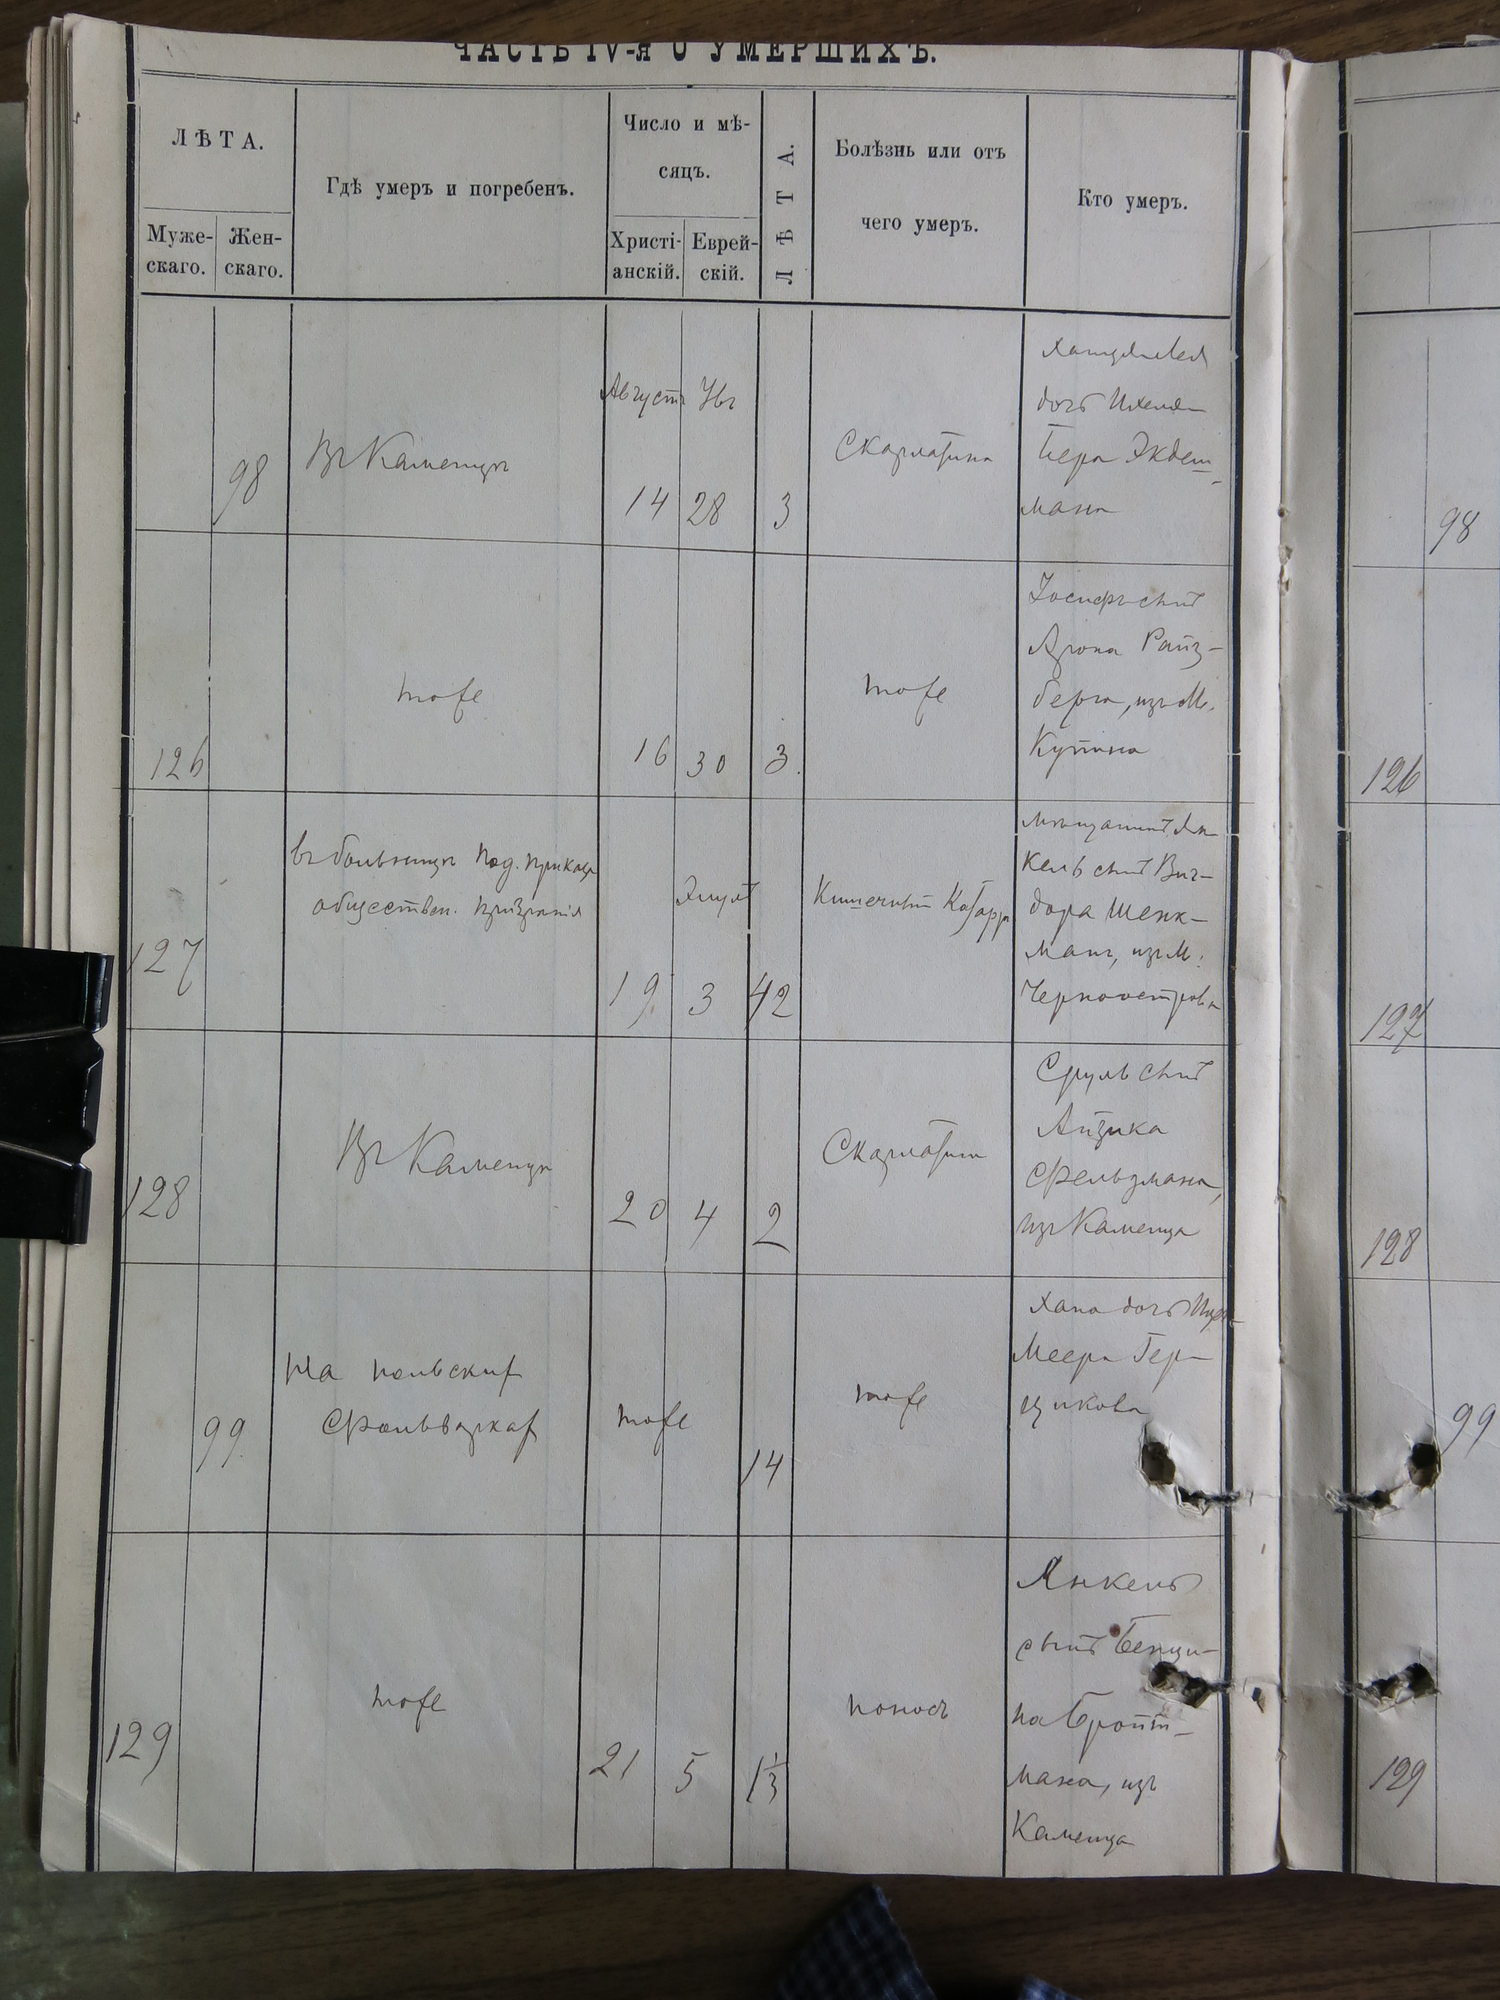 ЧАСТЬ IV-я О УМЕРШИХЪ.
ЛѢТА.
Муже-
скаго.
Жен-
скаго.
Гдѣ умеръ и погребенъ.
Число и мѣ-
сяцъ.
Христі-
анскій.
Еврей-
скій.
ЛѢТА.
Болѣзнь или отъ
чего умеръ.
Кто умеръ.
98
Въ Каменцѣ
Августъ
14
28
3
Скарлатина
дочь
Бера
мана
98
126
тоже
16
30
3
тоже
Іосифъ сынъ
Арона Райз-
берга, изъ М.
Купина
126
127
въ больницѣ под. приказа
обществен. призрѣнія
Элулъ
19
3
42
Кишечный Катарръ
мѣщанинъ Ян
кель сынъ Виг-
дора Шенк-
манъ, изъ М.
Черноострова
127
128
Въ Каменцѣ
20
4
2
Скарлатина
Сруль сынъ
Айзика
Фельдмана,
изъ Каменца
128
99
На польских
фольварках
тоже
14
тоже
Хана дочь
Меера Гер-
цикова
99
129
тоже
21
5
1 1/3
поносъ
Янкель
сынъ Бенци-
на Бройт-
мана, изъ
Каменца
129